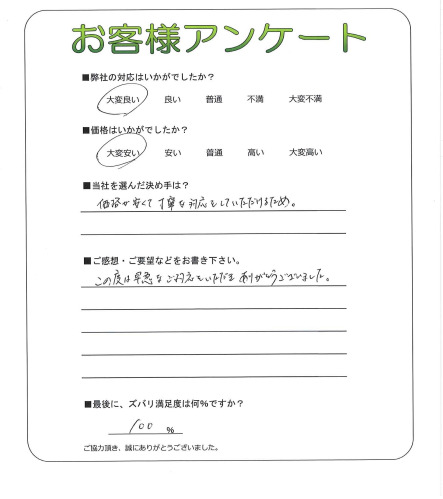 お客様アンケート
■弊社の対応はいかがでしたか?
大変良い 良い 普通 不満 大変不満
■価格はいかがでしたか?
大変安い 安い 普通 高い 大変高い
■当社を選んだ決め手は?
価格が安くて丁寧な対応をしていただけるため。
■ご感想・ご要望などをお書き下さい。
この度は早急なご対応をいただき ありがとうございました。
■最後に、ズバリ満足度は何%ですか?
100 %
ご協力頂き、誠にありがとうございました。